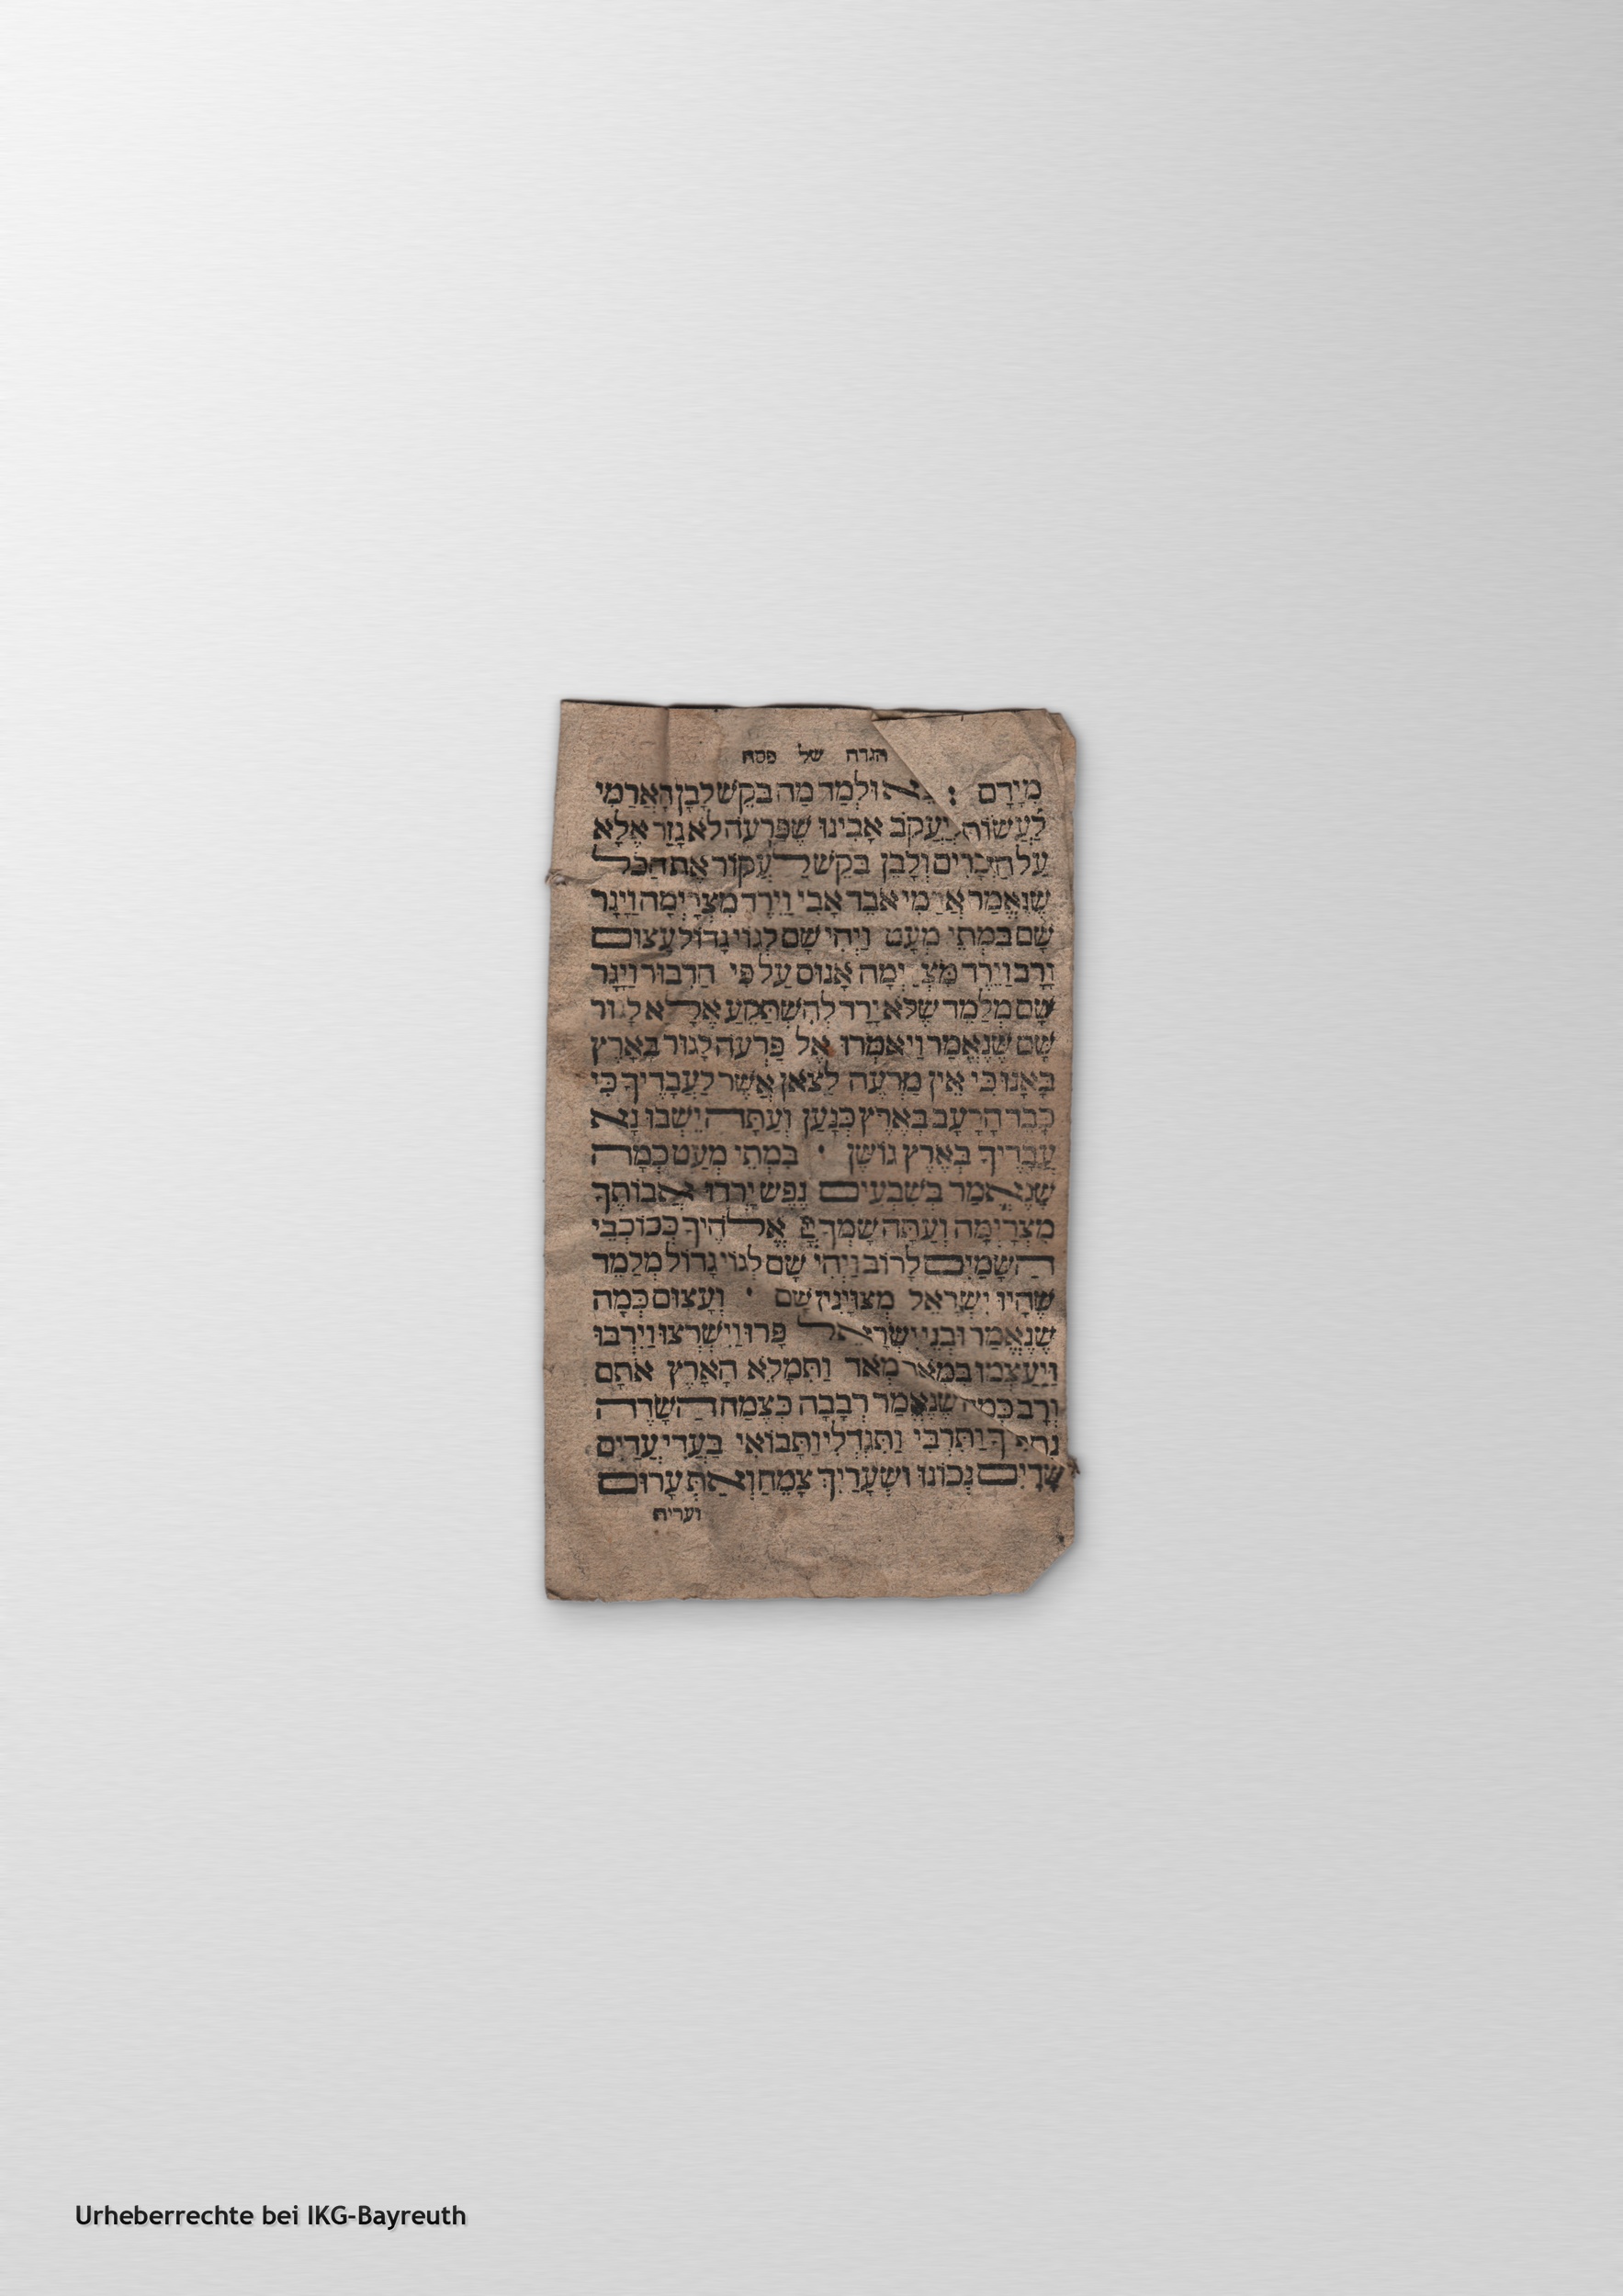 הגדה של פסח
מִיָדָם : וּלְמַד מַה בִּקֵשׁ לָבָן הָאֲרַמִי
לַעֲשׂוֹת יַעֲקֹב אָבִינוּ שֶׁפַּרְעֹה לֹא גָזַר אֶלָא
עַל הַזְכָרִים וְלָבָן בִּקֵשׁ לַעֲקוֹר אֶת הַכֹּל
שֶׁנֶאֱמַר אֲרַמִי אֹבֵד אָבִי וַיֵרֶד מִצְרַיְמָה וַיָגָר
שָׁם בִּמְתֵי מְעָט וַיְהִי שָׁם לְגוֹי גָדוֹל עָצוּם
וָרָב וַיֵרֶד מִצְרַיְמָה אָנוּס עַל פִּי הַדִבּוּר וַיָגָר
שָׁם מְלַמֵד שֶׁלֹא יָרַד לְהִשְׁתַּקֵעַ אֶלָא לָגוּר
שָׁם שֶׁנֶאֱמַר וַיֹאמְרוּ אֶל פַּרְעֹה לָגוּר בָּאָרֶץ
בָּאנוּ כִּי אֵין מִרְעֶה לַצֹאן אֲשֶׁר לַעֲבָדֶיךָ כִּי
כָבֵד הָרָעָב בְּאֶרֶץ כְּנָעַן וְעַתָּה יֵשְׁבוּ נָא
עֲבָדֶיךָ בְּאֶרֶץ גוֹשֶׁן · בִּמְתֵי מְעָט כְּמָה
שֶׁנֶאֱמַר בְּשִׁבְעִים נֶפֶשׁ יָרְדוּ אֲבוֹתֶיךָ
מִצְרָיְמָה וְעַתָּה שָׂמְךָ יְיָ אֱלֹהֶיךָ כְּכוֹכְבֵי
הַשָׁמַיִם לָרוֹב וַיְהִי שָׁם לְגוֹי גָדוֹל מְלַמֵד
שֶׁהָיוּ יִשְׂרָאֵל מְצוּיָנִין שָׁם · וְעָצוּם כְּמָה
שֶׁנֶאֱמַר וּבְנֵי יִשְׂרָאֵל פָּרוּ וַיִשְׁרְצוּ וַיִרְבּוּ
וַיַעַצְמוּ בִּמְאֹד מְאֹד וַתִּמָלֵא הָאָרֶץ אֹתָם
וָרָב כְּמָה שֶׁנֶאֱמַר רְבָבָה כְּצֶמַח הַשָׂדֶה
נְתַתִּיךְ וַתִּרְבִּי וַתִּגְדְלִי וַתָּבוֹאִי בַּעֲדִי עֲדָיִים
שָׁדַיִם נָכוֹנוּ וּשְׂעָרֵיךְ צָמֵחַ וְאַתְּ עָרוֹם
ועריה
Urheberrechte bei IKG-Bayreuth